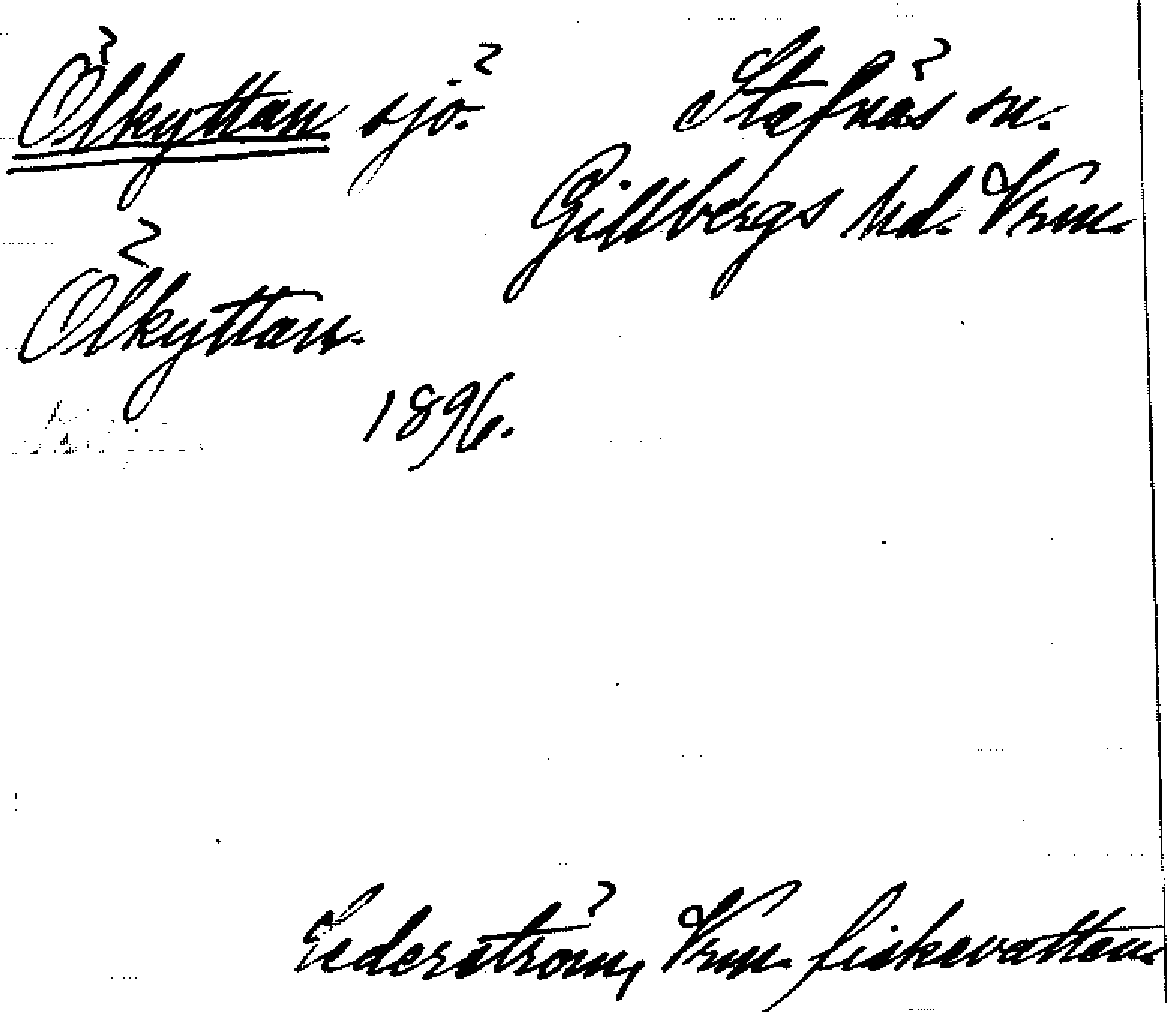 Ölkyttan sjö. Stafnäs sn.
Gillbergs hd. Vrm.
Ölkyttan.
1896.
Cederström, Vrm. fiskevatten.